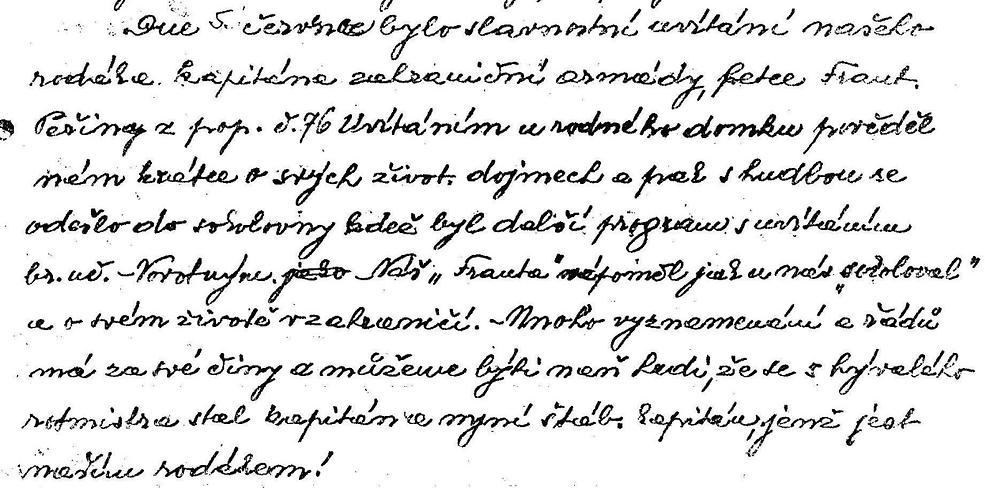 Dne 5 července bylo slavnostní uvítání našeho
rodáka kapitána zahraniční armády, Frant.
Peřiny z pop. č. 76 Uvítáním u rodného domku pověděl
nám krátce o svých život. dojmech a pak s hudbou se
odešlo do sokolovny kdež byl další program s uvítáním
br. uč. - Náš „Franta" jak u nás „sokoloval"
a o svém životě v zahraničí. - Mnoho vyznamenání a řádů
má za své činy a můžeme býti naň hrdi, že se z bývalého
rotmistra stal kapitán a nyní štáb. kapitán, jenž jest
naším rodákem!